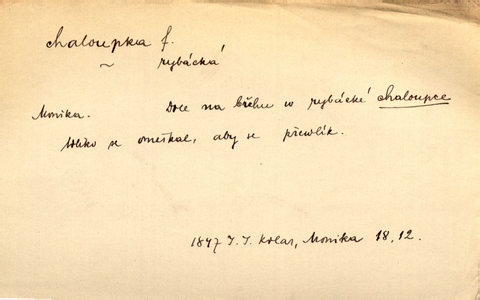 chaloupka f.
~ rybácká
Monika. Dole na břehu w rybácké chaloupce
toliko se omeškal, aby se přewlík.
1847 J. J. Kolar, Monika 18, 12.